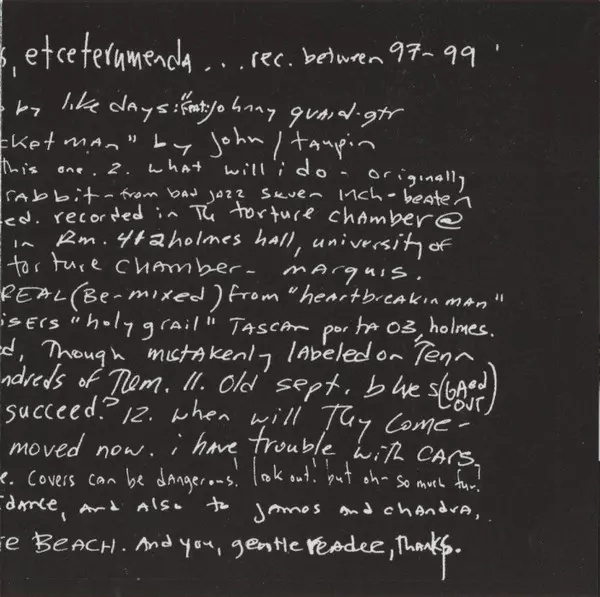 s, etceterumenda... rec. between 97-99
by like days: "feat: johnny quaid-gtr
cket man" by john/taupin
this one. 2. what will i do - originally
rabbit - from bad jazz seven inch - beaten
ed. recorded in The torture chamber @
in Rm. 412 holmes hall, university of
torture chamber - marquis.
REAL (Be-mixed) from "heartbreakin man"
isers "holy grail" TASCAM porta 03, holmes.
d, Though mistakenly labeled on Tenn
ndreds of Them. 11. Old sept. blues
succeed? 12. when will They come -
moved now. i have trouble with cars.
e. Covers can be dangerous! look out! but oh- so much fun!
idance, and also to james and chandra,
e BEACH. And you, gentle reader, thanks.